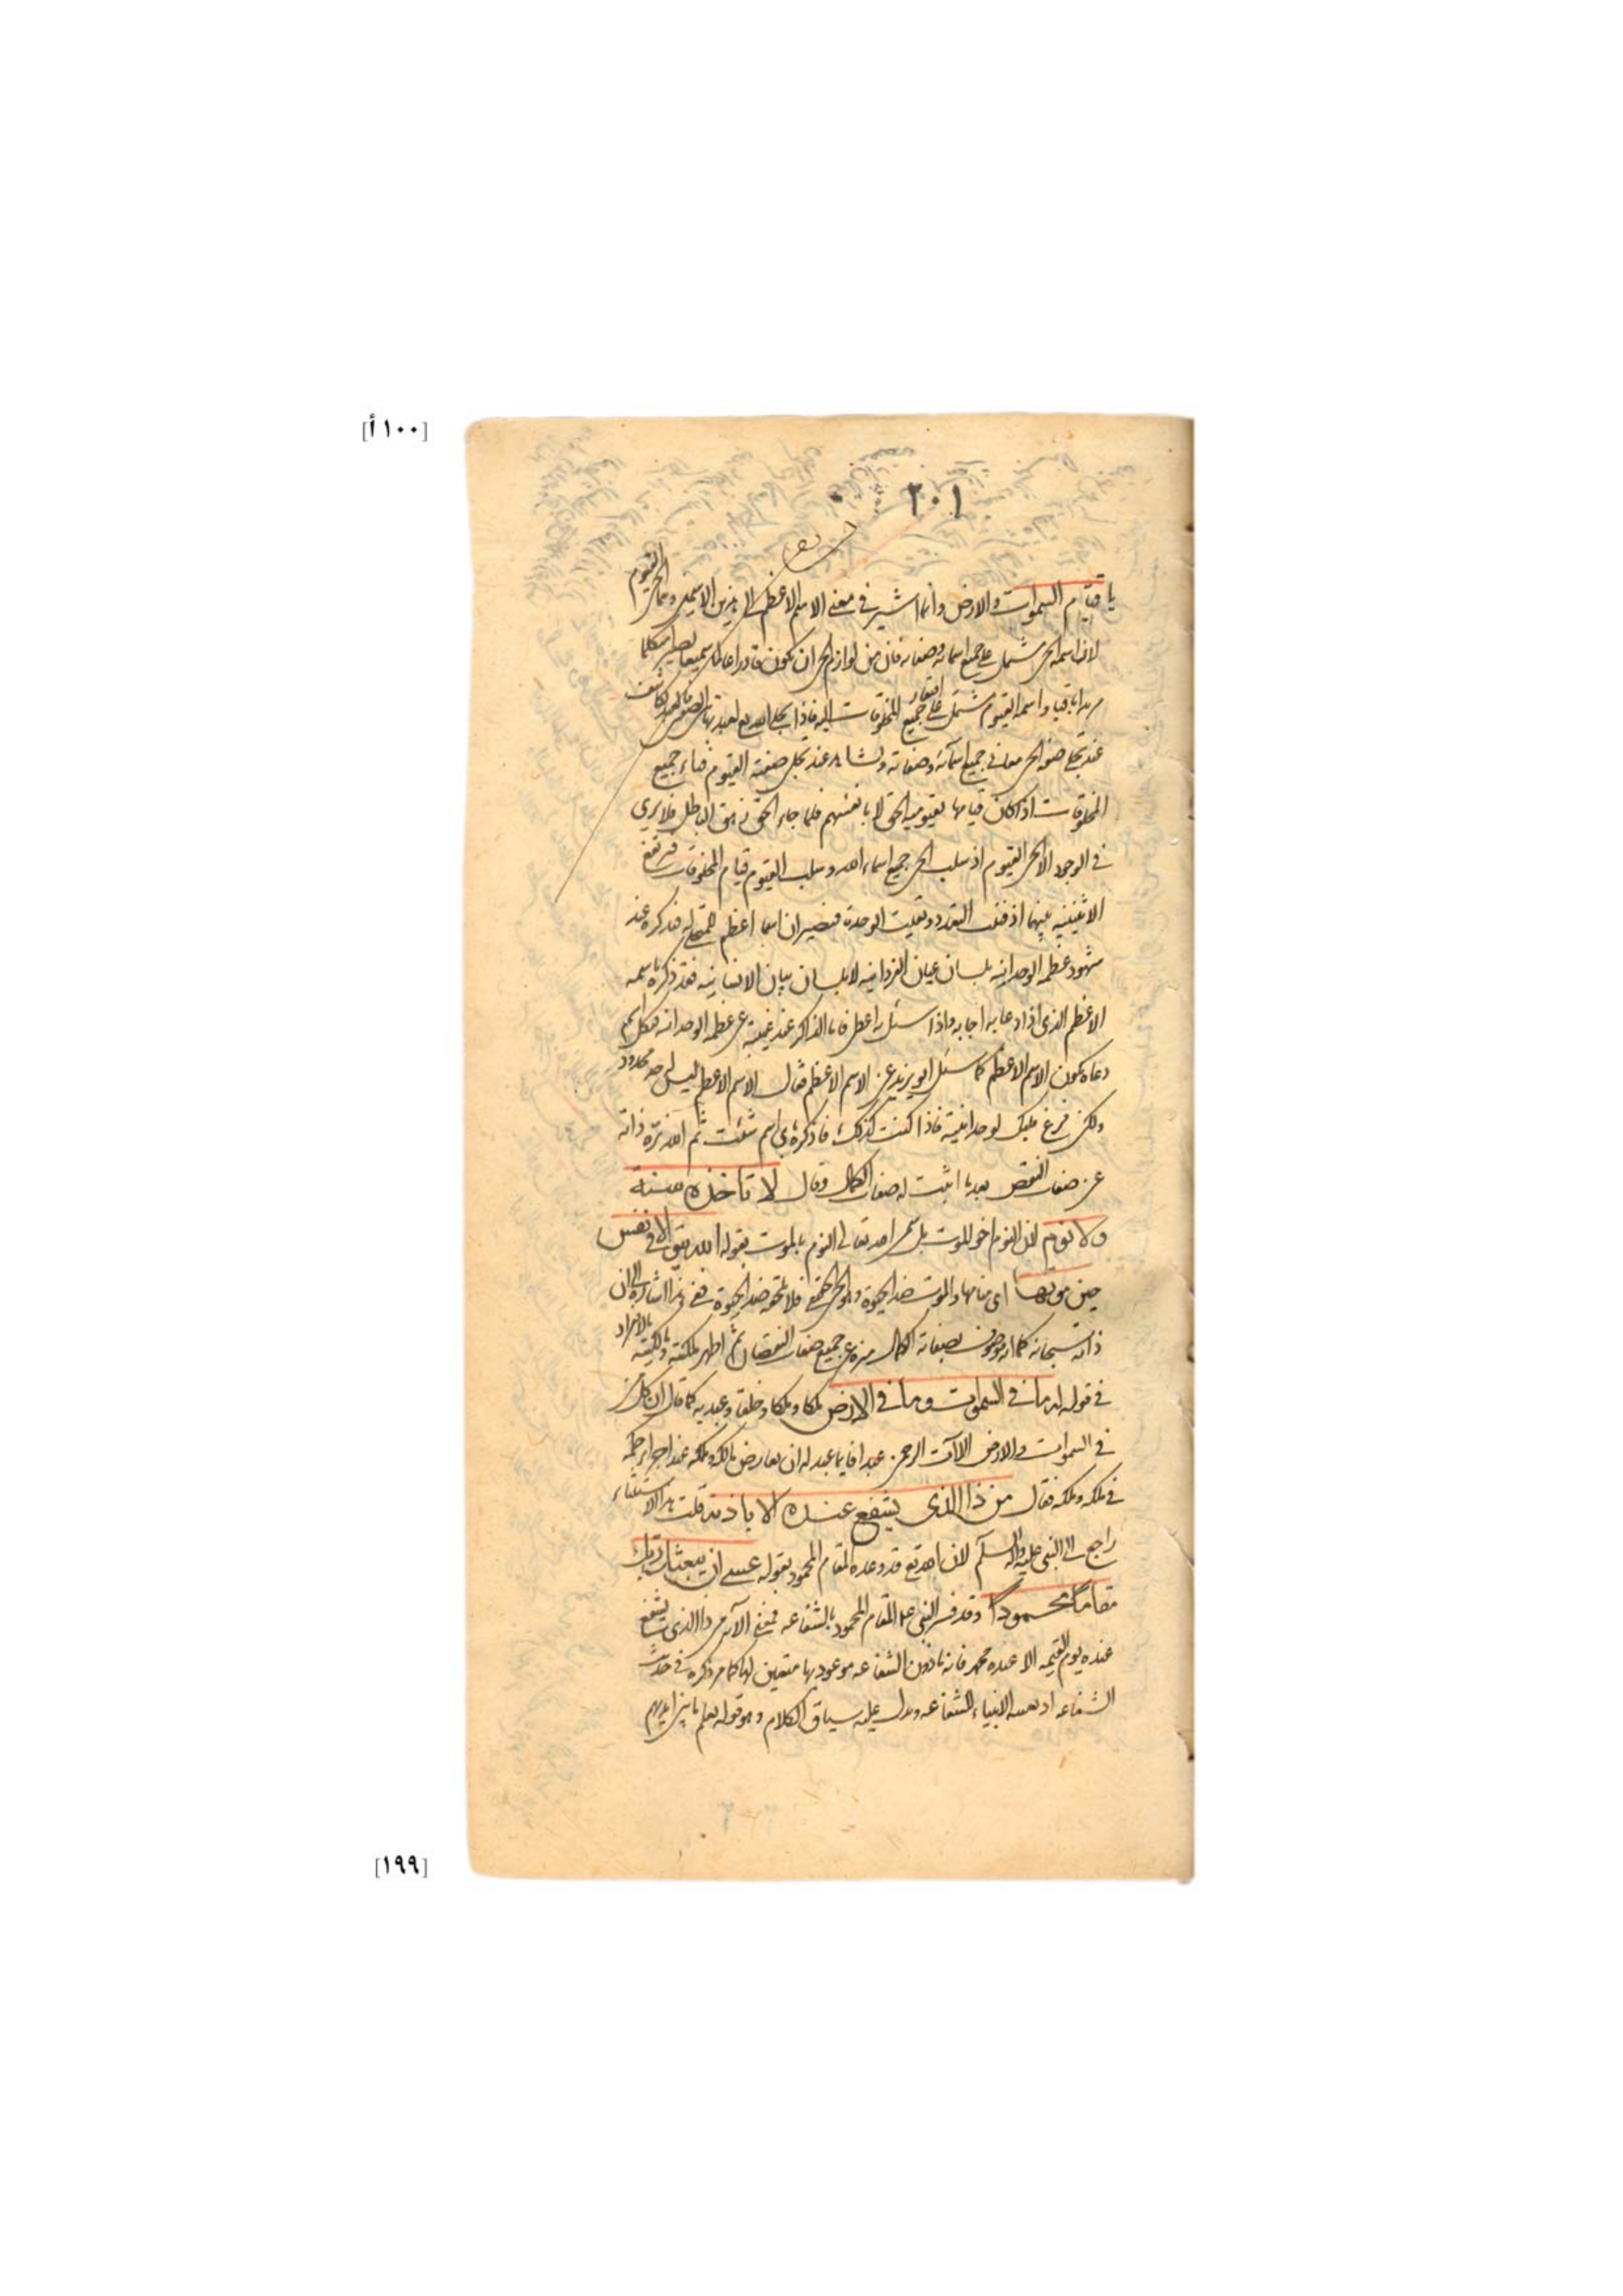 [١٠٠ أ]
٢٠١
يا قيام السموات والارض وانما اشير في معنى الاسم الاعظم الى هذين الاسمين وهما الحى القيوم
لان اسمه الحى مشتمل على جميع اسمائه وصفاته فان من لوازم الحى ان يكون قادرا عالما سميعا بصيرا متكلما
مريدا باقيا واسمه القيوم مشتمل على افتقار جميع المخلوقات اليه فاذا تجلى الله لعبد بهاتين الصفتين
عند تجلى صفة الحى معانى جميع اسمائه وصفاته ويشاهد عند تجلى صفة القيوم فناء جميع
المخلوقات اذ كان قيامها بقيومية الحق لا بانفسهم فلما جاء الحق زهق الباطل فلا يرى
في الوجود الا الحى القيوم اذ سلب الحى جميع اسماء الله وسلب القيوم قيام المخلوقات فيرتفع
الاثنينيه بينهما اذ فنت التعدد وبقيت الوحدة فيصيران اسما اعظم للمتجلى له فيذكره عند
شهود عظمه الوحدانيه بلسان عيان الفردانيه لا بلسان بيان الانسانيه فقد ذكره باسمه
الاعظم الذى اذا دعا به اجابه واذا سئل به اعطى فاما الذاكر عند غيبته عن عظمه الوحدانيه فبكل اسم
دعاه يكون الاسم الاعظم كما سئل ابو يزيد عن الاسم الاعظم فقال الاسم الاعظم ليس له حد محدود
ولكن فرغ قلبك لوحدانيته فاذا كنت كذلك فاذكره باى اسم شئت ثم انه نزه ذاته
عن صفات النقص بعد ما اثبت له صفات الكمال وقال لا تاخذه سنة
ولا نوم لان النوم اخو الموت بل سمى الله تعالى النوم بالموت بقوله الله يتوفى الانفس
حين موتها اى منامها والموت ضد الحيوة وهو الحى الحقيقى فلا يلحقه ضد الحيوة ففى هذا اشارة الى ان
ذاته سبحانه كما انه موصوف بصفات الكمال منزه عن جميع صفات النقصان ثم اظهر ملكته ومالكيته بالانفراد
في قوله له ما في السموات وما في الارض ملكا وملكا وخلقا وعبديه كما قال ان كل من
في السموات والارض الا آت الرحمن عبدا فايما عبد له ان يعارض مالكه وملكه عند اجراء حكمه
في ملكه وملكه فقال من ذا الذى يشفع عنده الا باذنه قلت هذا الاستثناء
راجع الى النبى عليه واله السلام لان الله تع قد وعده المقام المحمود بقوله عسى ان يبعثك ربك
مقاما محمودا وقد فسر النبى ع المقام المحمود بالشفاعه فمعنى الآية من ذا الذى يشفع
عنده يوم القيمه الا عبده محمد فانه ماذون الشفاعه موعود بها متعين لها كما مر ذكره في حديث
الشفاعه الانبياء للشفاعه ويدل عليه سياق الكلام وهو قوله يعلم ما بين ايديهم
[١٩٩]